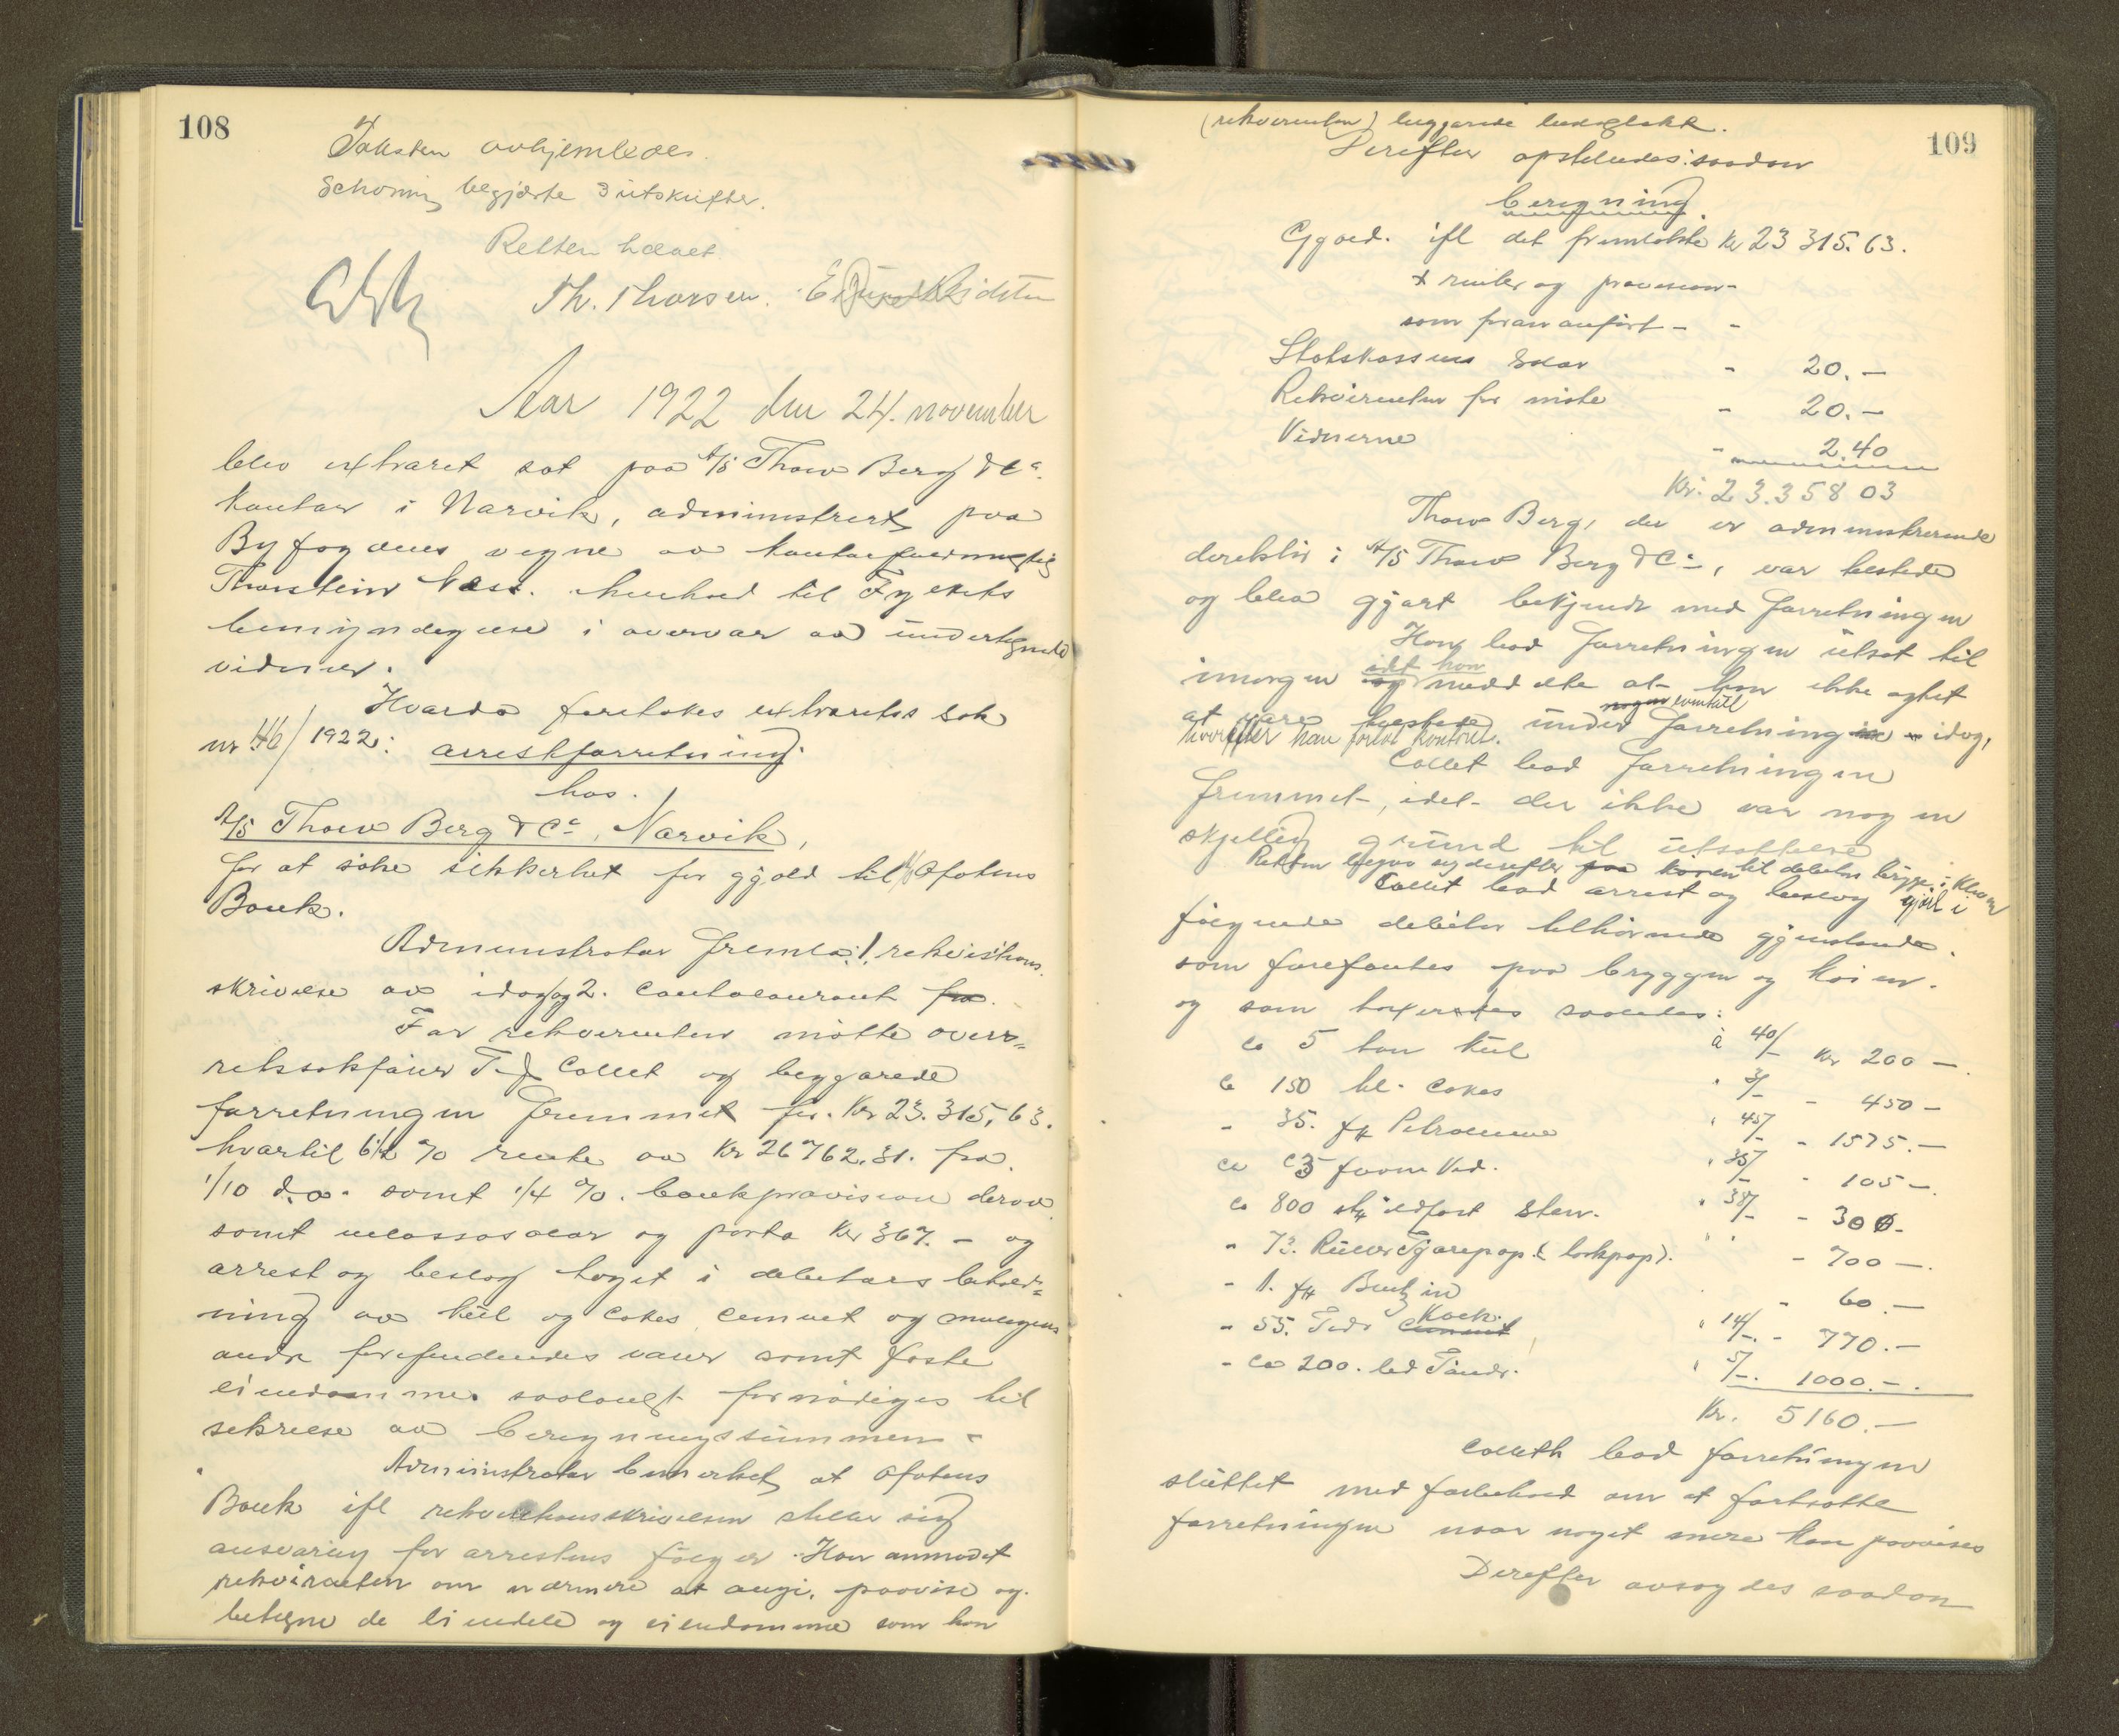 108
Taksten avhjemledes.
Schøning begjærte 3 utskrifter.
Retten hævet.
Th. Thorsen.
Aar 1922 den 24. november
blev extraret sat paa A/S Thow Berg & Co.
kontor i Narvik, administrert paa
Byfogdens vegne av kontorfuldmægtig
Thorstein Næss. i henhold til Fylkets
bemyndigelse i overvær av undertegnede
vidner.
Hvorda foretokes extraretssak
nr 46/1922: arrestforretning.
hos.
A/S Thow Berg & Co, Narvik,
for at søke sikkerhet for gjæld til A/S Ofotens
Bank.
Administrator fremla: 1. rekvisitions
skrivelse av idag og 2. contocourant fra.
For rekvirenten møtte overs-
retssakfører Collet og begjærede
forretningen fremmet for Kr 23.315,63.
hvortil 6 1/2 % rente av Kr 26762.31. fra
1/10 d.a. samt 1/4 %. bankprovision derav
samt incassosalær og porto Kr 367.- og
arrest og beslag taget i debitors behold-
ning av kul og cokes, cement og muligens
andre forefindendes varer samt faste
eiendomme saalangt fornødiges til
sikrelse av beregningssummen.
Administrator bemerket at Ofotens
Bank ifl rekvisitionsskrivelsen stiller sig
ansvarlig for arrestens følger. Han anmodet
rekvirenten om nærmere at angi, paavise og
betegne de eiendele og eiendomme som han
109
(rekvirenten) begjærede beslaglakt.
Derefter opstilledes saadan
beregning.
Gjæld. ifl det fremlakte Kr 23 315.63.
+ renter og provision
som foran anført - -
Statskassens salær - 20.-
Rekvirenten for møte - 20.-
Vidnerne - 2.40
Kr. 23.358 03
Thow Berg, der er administrerende
direktør i A/S Thow Berg & Co, var tilstede
og blev gjort bekjendt med forretningen
Han bad forretningen utsat til
imorgen og idet han meddelte at han ikke agtet
at være tilstede under nogen eventuel forretning idag,
hvorefter han forlot kontoret.
Collet bad forretningen
fremmet, idet der ikke var nogen
skjellig grund til utsættelse
Retten begav sig derefter paa kaien til debitors brygge i
Collet bad arrest og beslag gjort i
følgende debitor tilhørende gjenstande
som forefantes paa bryggen og kaien.
og som taxertes saaledes:
ca 5 ton kul à 40/- Kr 200 -.
ca 150 hl. cokes " 3/- - 450 -
- 35. ft Petroleum " 45/- - 1575.-
ca 3 favne Ved. " 35/- - 105 -.
ca 800 stk ildfast Sten. " 38/- - 300-
- 73. Ruller Tjærepap. (takpap). " - 700 -.
- 1. ft Bentzin - 60.-
- 55. Tdr cement Kock. " 14/-. - 770.-
- ca 200. led Tøndr. " 5/-. 1000.-.
Kr. 5160.-
Collett bad forretningen
sluttet med forbehold om at fortsætte
forretningen naar noget mere kan paavises
Derefter avsagdes saadan